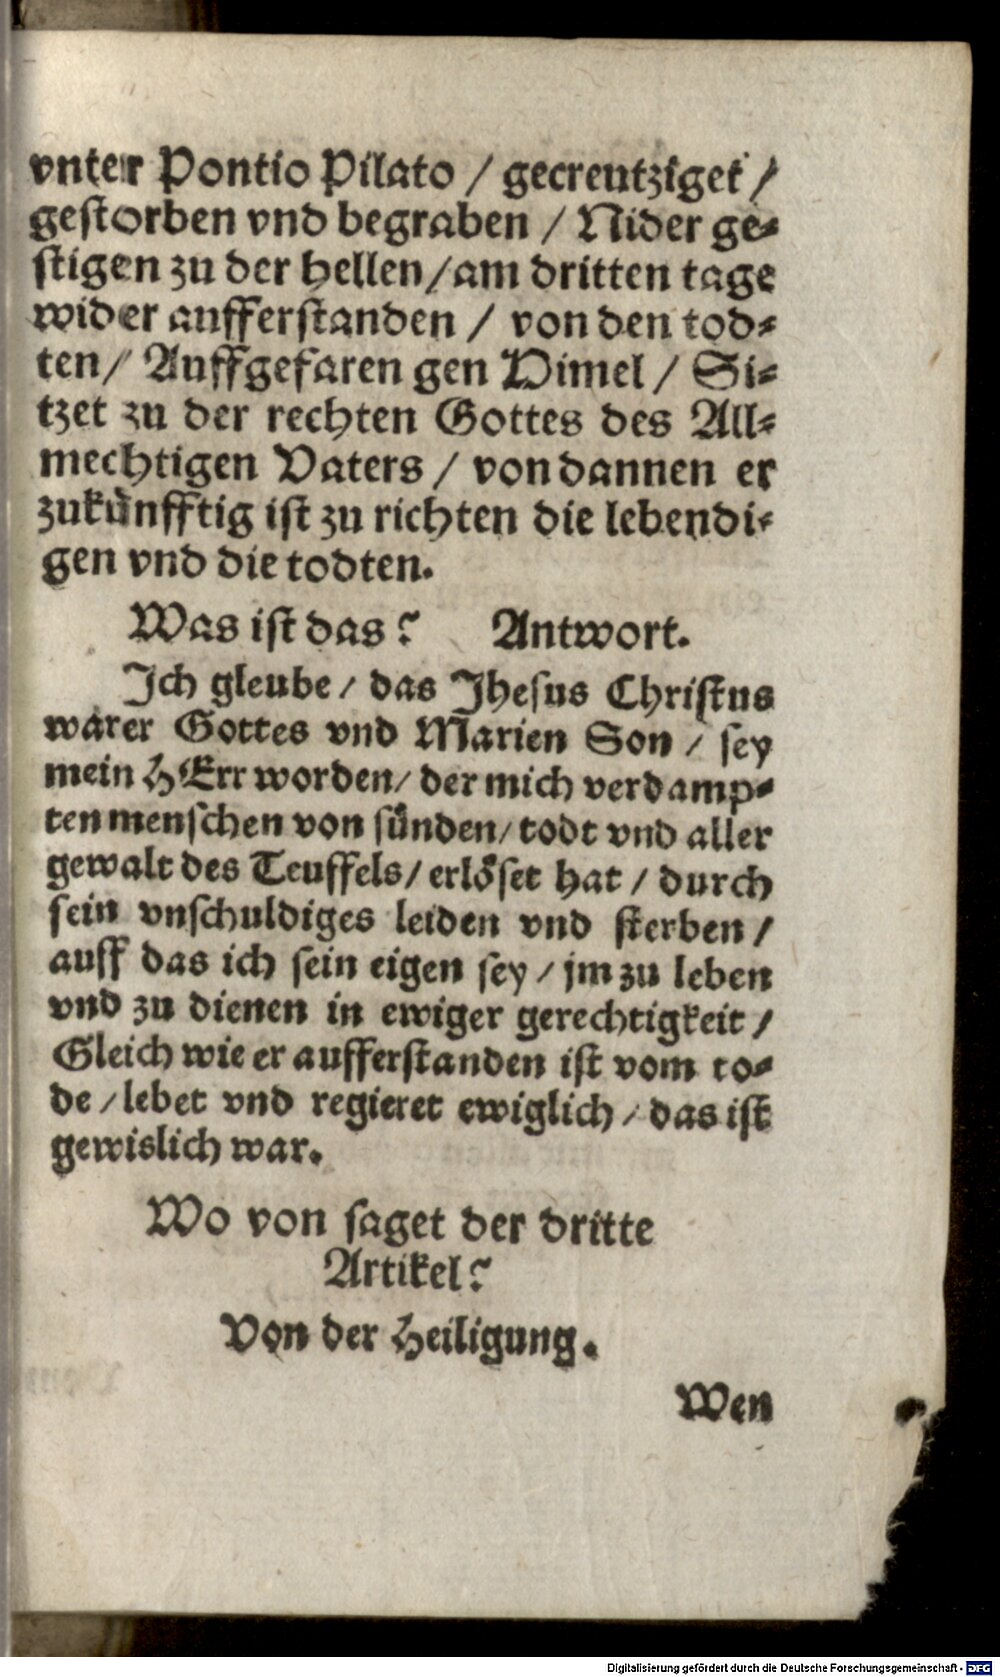 vnter Pontio Pilato / gecreutziget /
gestorben vnd begraben / Nider ge⸗
stigen zu der hellen / am dritten tage
wider aufferstanden / von den tod⸗
ten / Auffgefaren gen Himel / Si⸗
tzet zu der rechten Gottes des All⸗
mechtigen Vaters / von dannen er
zukünfftig ist zu richten die lebendi⸗
gen vnd die todten.
Was ist das? Antwort.
Ich gleube / das Jhesus Christus
warer Gottes vnd Marien Son / sey
mein HErr worden / der mich verdamp⸗
ten menschen von sünden / todt vnd aller
gewalt des Teuffels / erlöset hat / durch
sein vnschuldiges leiden vnd sterben /
auff das ich sein eigen sey / jm zu leben
vnd zu dienen in ewiger gerechtigkeit /
Gleich wie er aufferstanden ist vom to⸗
de / lebet vnd regieret ewiglich / das ist
gewislich war.
Wo von saget der dritte
Artikel?
Von der Heiligung.
Wen
Digitalisierung gefördert durch die Deutsche Forschungsgemeinschaft - DFG